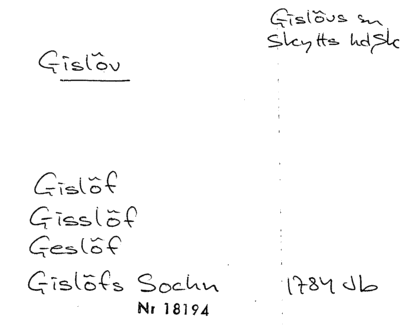 Gislövs sn
Skytts hd, Sk
Gislöv
Gislöf
Gisslöf
Geslöf
Gislöfs Sochn 1784 Jb
Nr 18194